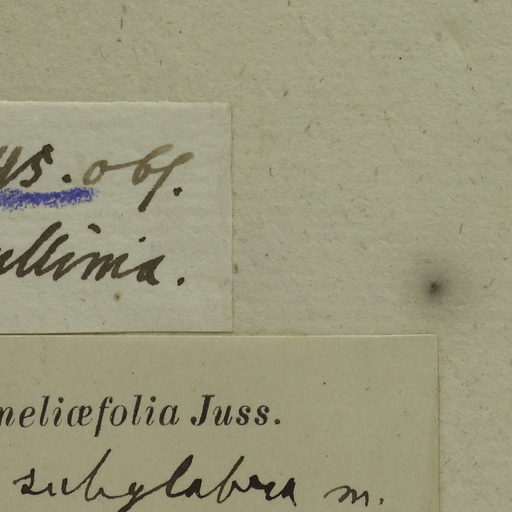 45. obs.
ullinia.
meliæfolia Juss.
subglabra m.